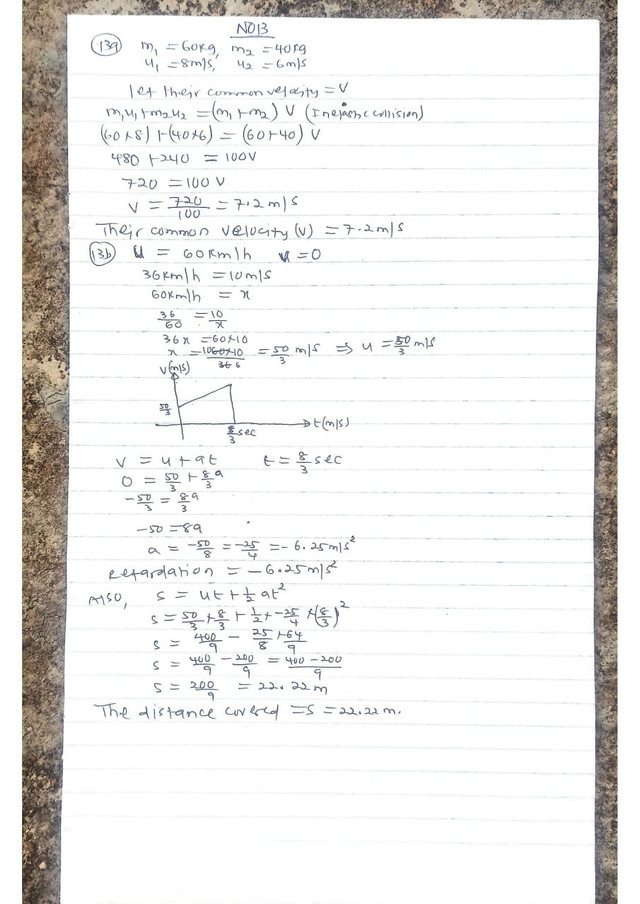 NO13
13a m₁ = 60kg, m₂ = 40kg
u₁ = 8m/s, u₂ = 6m/s
let their common velocity = V
m₁u₁ + m₂u₂ = (m₁ + m₂) V (Inelastic collision)
(60 × 8) + (40 × 6) = (60 + 40) V
480 + 240 = 100V
720 = 100 V
V = 720/100 = 7.2 m/s
Their common velocity (v) = 7.2 m/s
13b u = 60km/h v = 0
36km/h = 10m/s
60km/h = x
36/60 = 10/x
36x = 60×10
x = /36 = 50/3 m/s ⇒ u = 50/3 m/s
V(m/s)
50/3
t(m/s)
8/3 sec
v = u + at t = 8/3 sec
0 = 50/3 + 8/3 a
-50/3 = 8/3 a
-50 = 8a
a = -50/8 = -25/4 = -6.25m/s²
retardation = -6.25m/s²
Also, s = ut + ½ at²
s = 50/3 × 8/3 + ½ × -25/4 × (8/3)²
s = 400/9 - 25/8 × 64/9
s = 400/9 - 200/9 = 400-200/9
s = 200/9 = 22.22m
The distance covered = s = 22.22m.